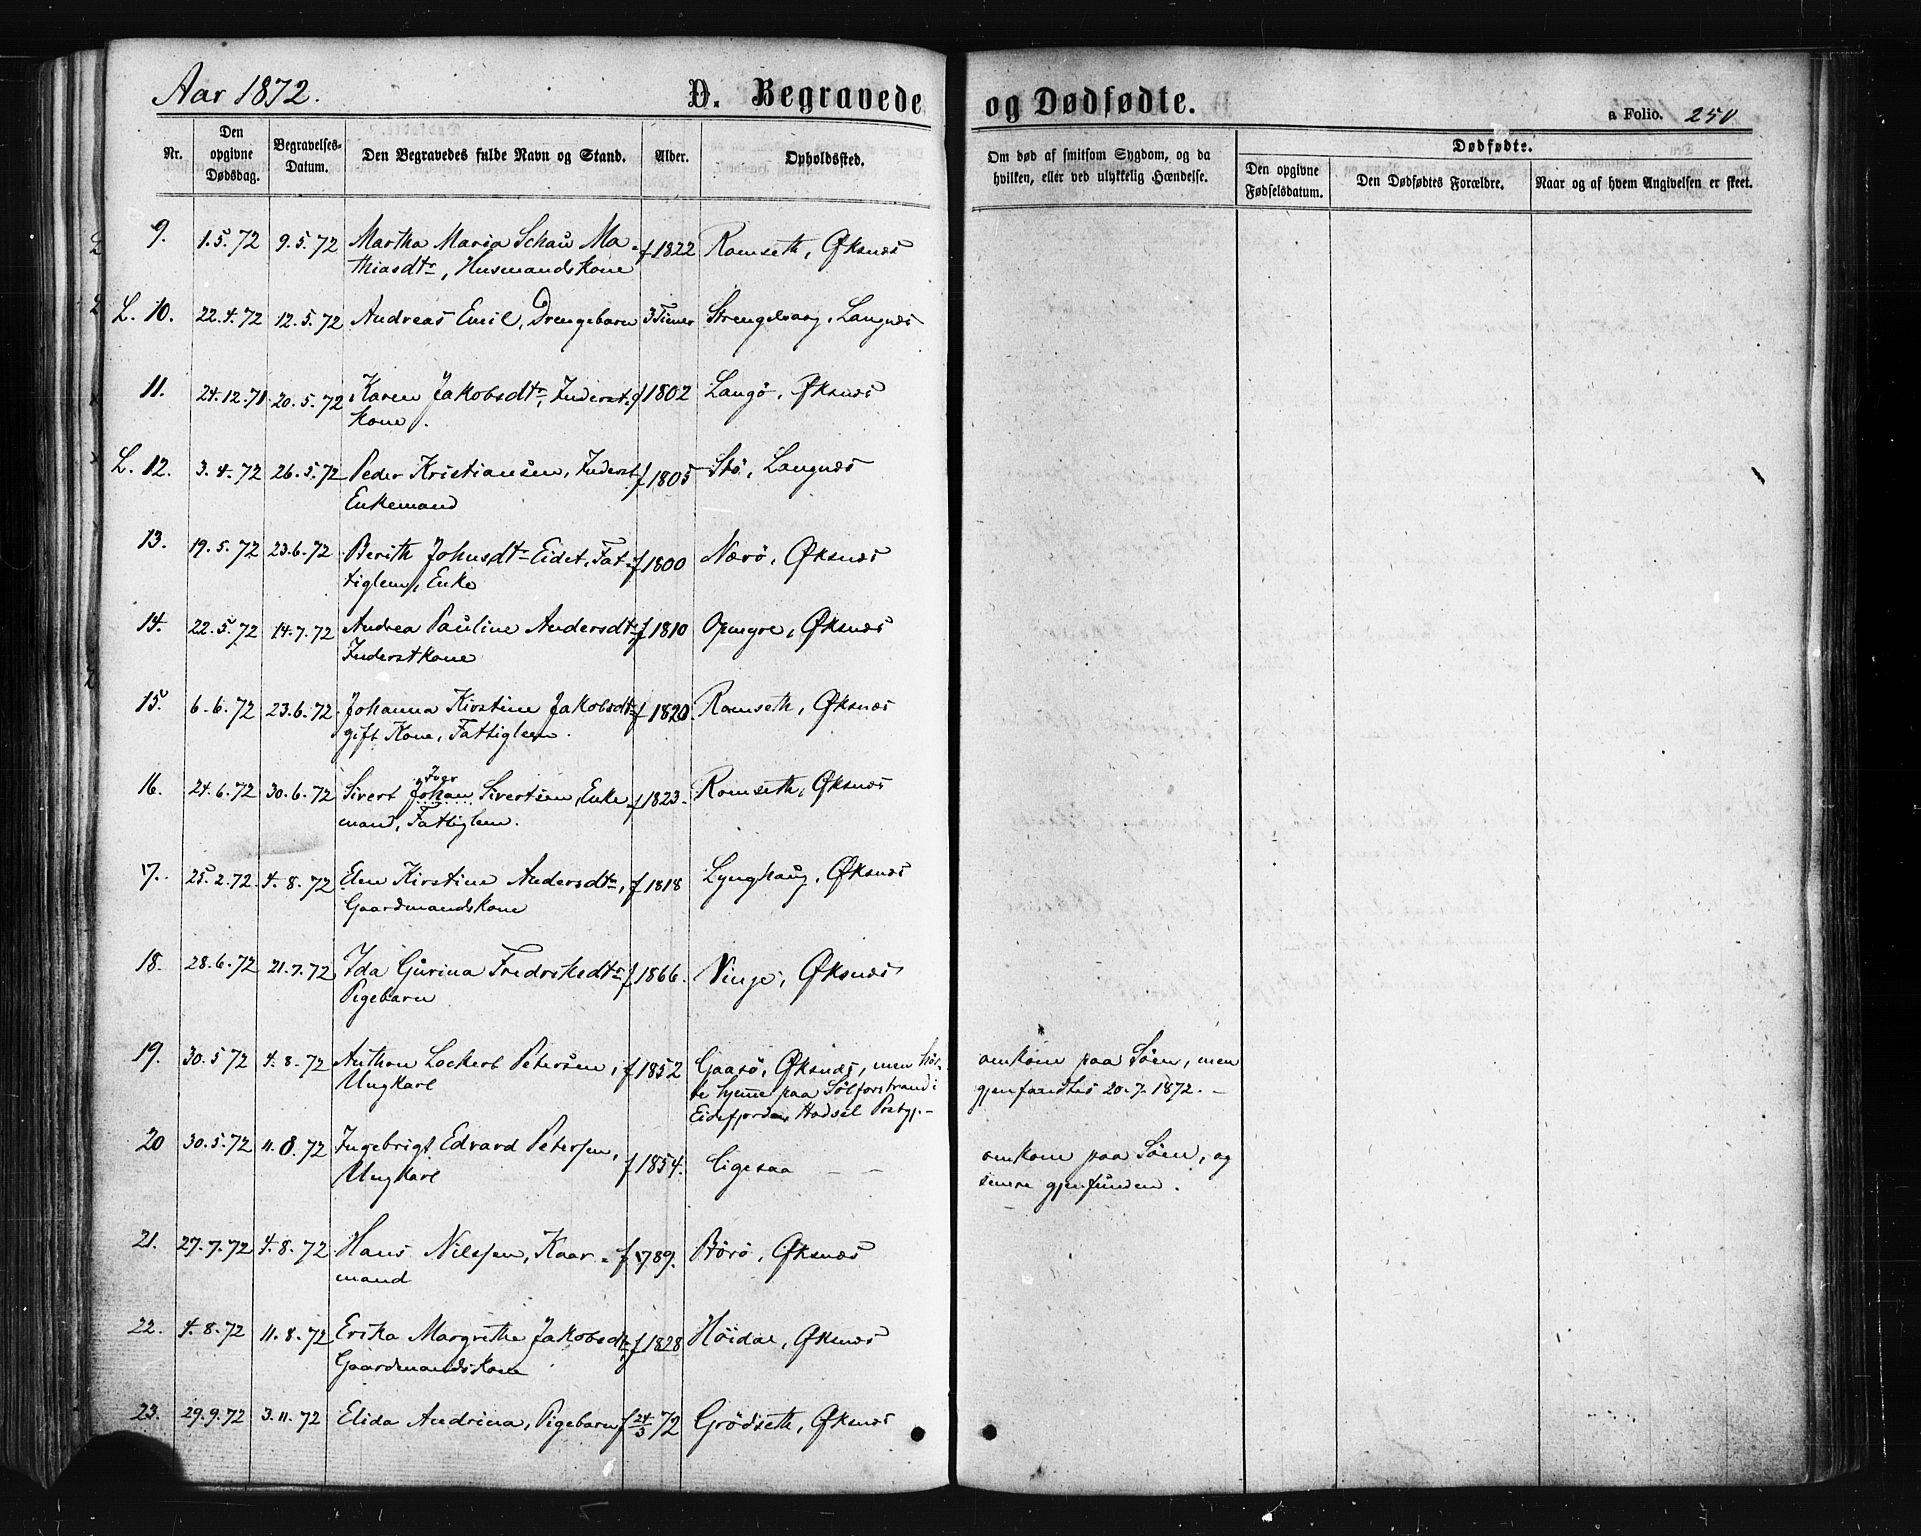 Aar 1872.
D. Begravede og Dødfødte.
a Folio. 250
Nr.
Den opgivne Dødsdag.
Begravelses-Datum.
Den Begravedes fulde Navn og Stand.
Alder.
Opholdssted.
Om død af smitsom Sygdom, og da hvilken, eller ved ulykkelig Hændelse.
Dødfødte.
Den opgivne Fødselsdatum.
Den Dødfødtes Forældre.
Naar og af hvem Angivelsen er skeet.
9. 1.5.72 9.5.72 Martha Maria Schau Ma- f 1822 Romseth, Øksnæs
thiasdtr, Husmandskone
L. 10. 22.4.72 12.5.72 Andreas Emil, Drengebarn 3 Timer Strengelvaag, Langnæs
11. 24.12.71 20.5.72 Karen Jakobsdtr, Inderst- f 1802 Langö, Øksnæs
kone.
L. 12. 3.4.72 26.5.72 Peder Kristiansen, Inderst f 1805 Stö, Langnæs
Enkemand
13. 19.5.72 23.6.72 Berith Johnsdtr Eidet, Fat- f 1800 Nærö, Øksnæs
tiglem, Enke
14. 22.5.72 14.7.72 Andrea Pauline Andersdtr f 1810 Opmyre, Øksnæs
Inderstkone
15. 6.6.72 23.6.72 Johanna Kirstine Jakobsdtr f 1820. Romseth, Øksnæs
gift Kone, Fattiglem.
Iver
16. 24.6.72 30.6.72 Sivert Johan Sivertsen, Enke f 1823. Romseth, Øksnæs
mand, Fattiglem.
17. 25.2.72. 4.8.72 Elen Kirstine Andersdtr, f 1818 Lynghaug, Øksnæs
Gaardmandskone
18. 28.6.72 21.7.72 Ida Gurina Fredrikedtr f 1866. Vinje, Øksnæs
Pigebarn
19. 30.5.72 4.8.72 Anthon Lockert Petersen, f 1852 Gaasö, Øksnæs, men hör- omkom paa Söen, men
Ungkarl te hjeme paa Sölforstrand i gjenfandtes 20.7.1872. -
Eidsfjorden, Hadsel Prstgj. -
20 30.5.72 11.8.72 Ingebrigt Edvard Petersen, f 1854. ligesaa - - omkom paa Söen, og
Ungkarl senere gjenfunden.
21. 27.7.72 4.8.72 Hans Nilssen, Kaar- f 1789. Börö, Øksnæs
mand
22. 4.8.72 11.8.72 Erika Margrethe Jakobsdtr f 1828 Höidal, Øksnæs
Gaardmandskone
23. 29.9.72 3.11.72 Elida Andrina, Pigebarn f 24/5 72 Grödseth, Øksnæs